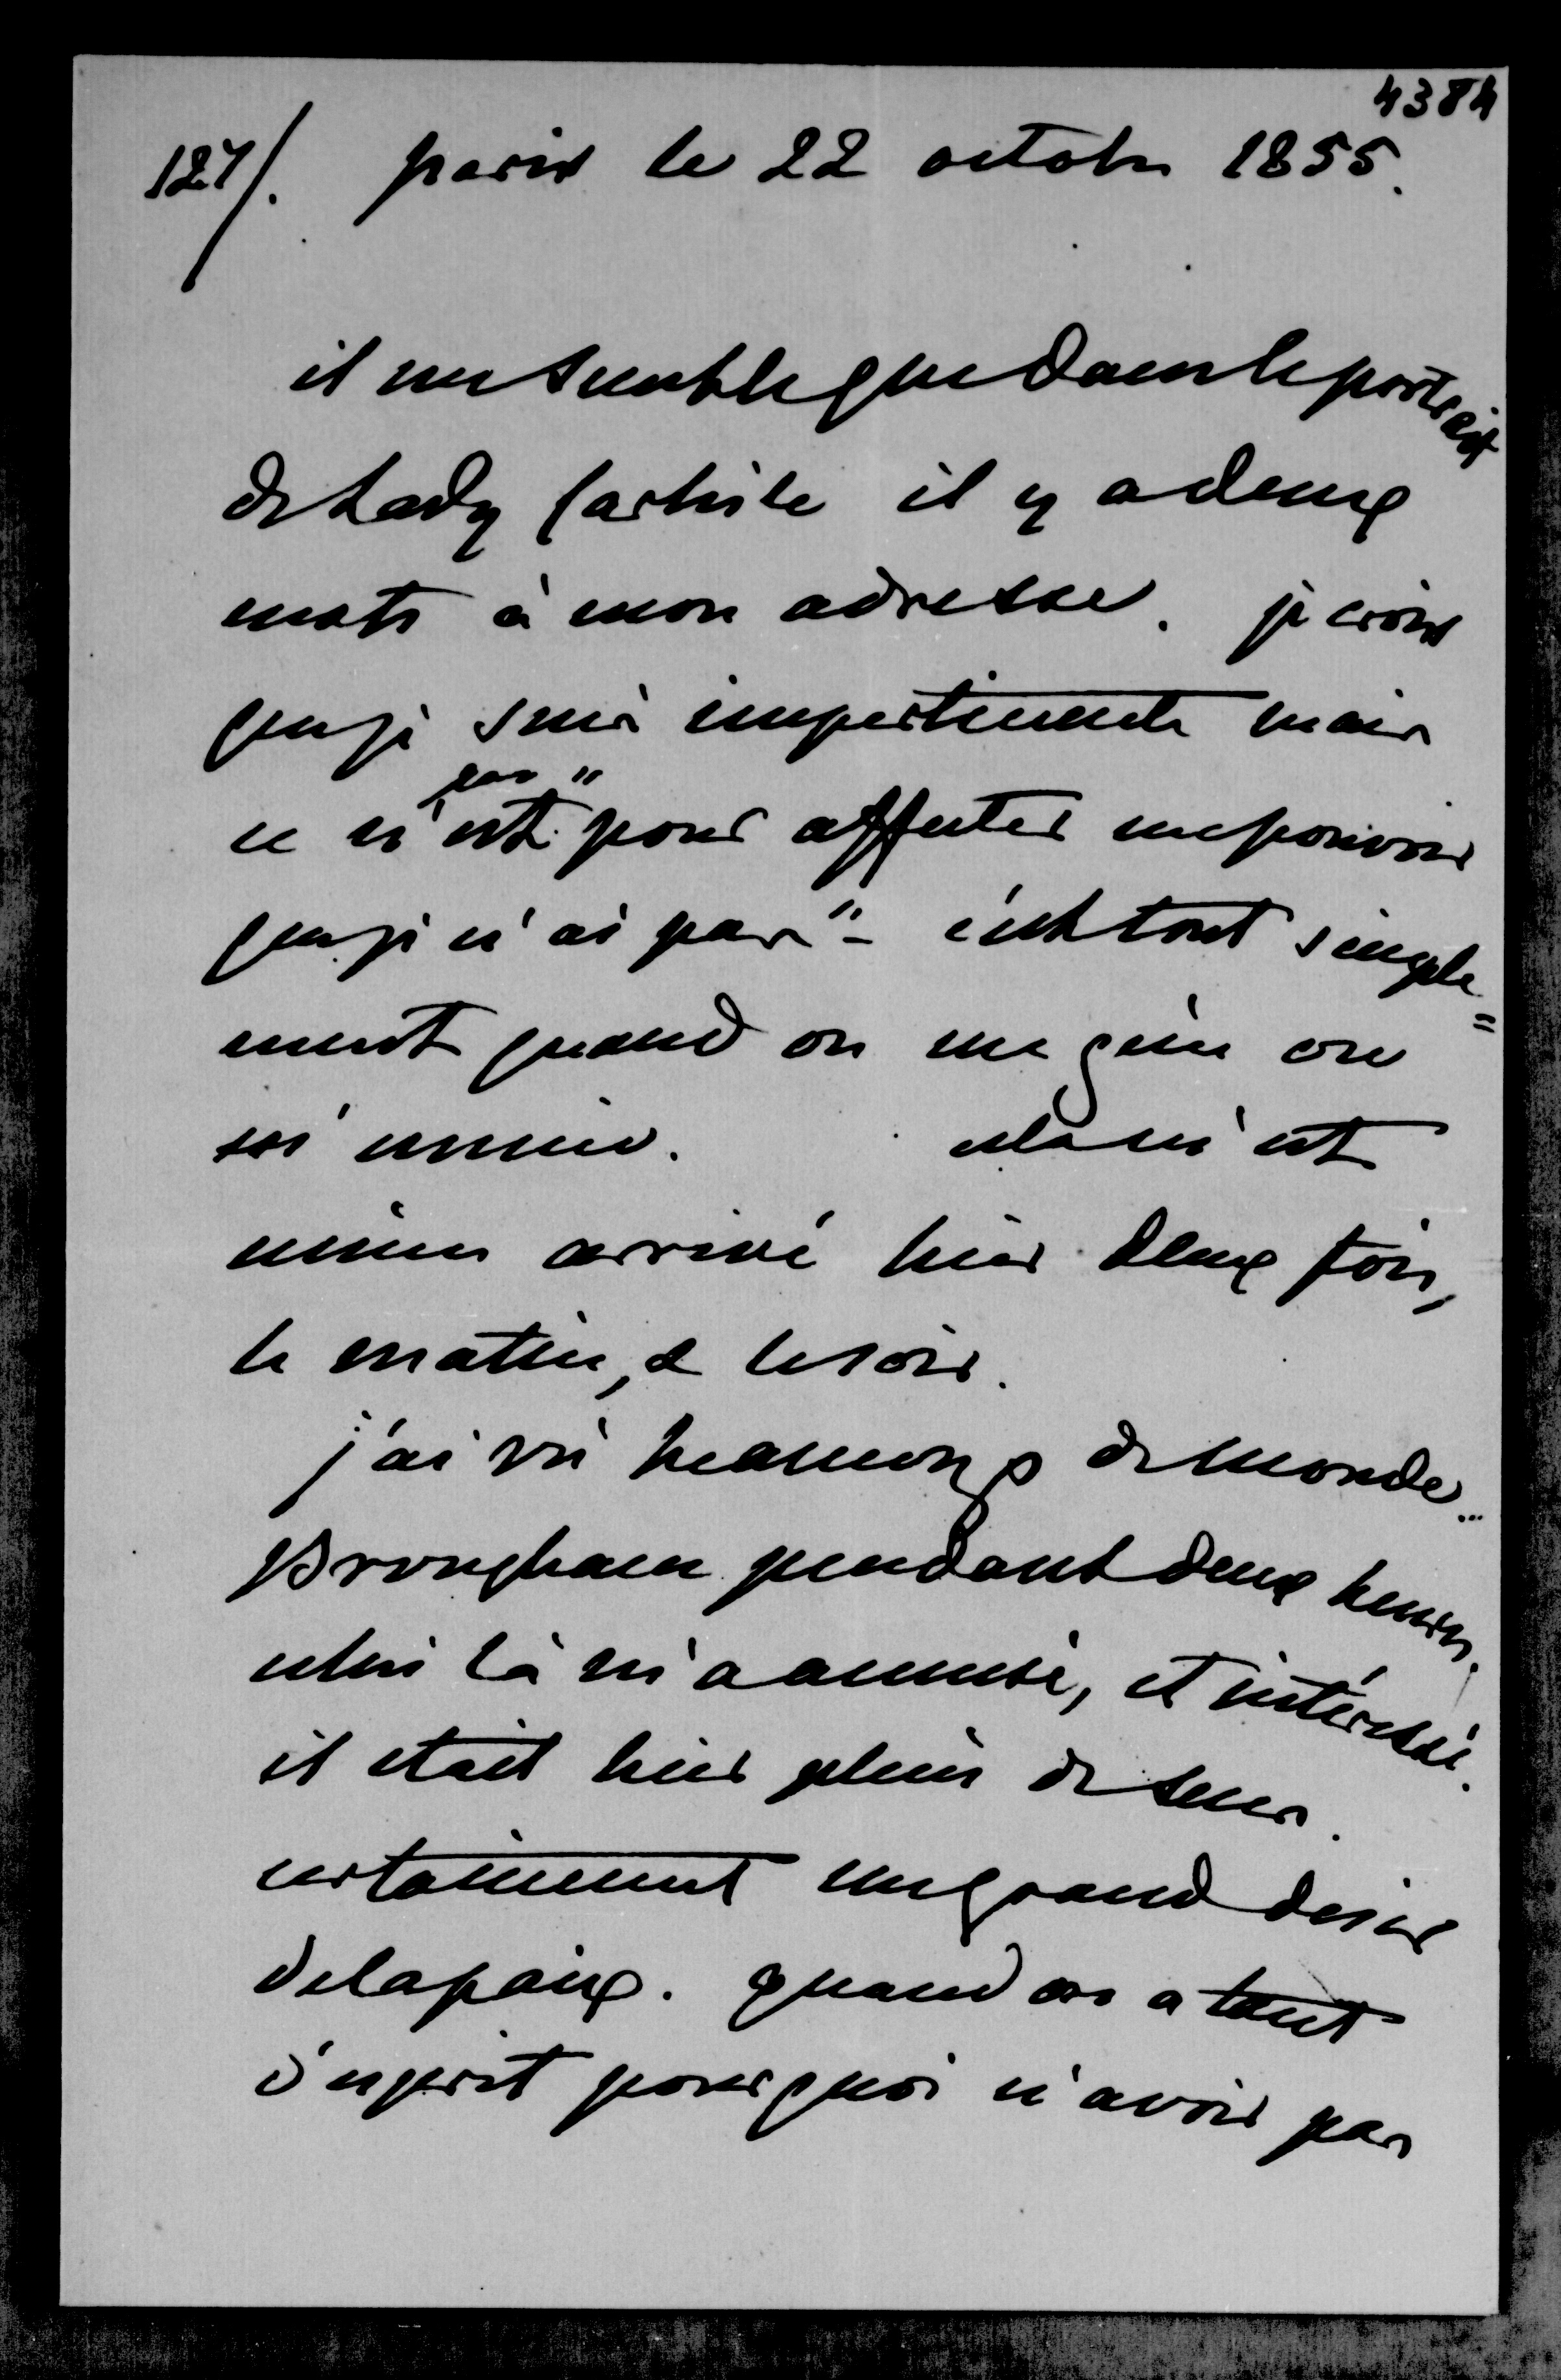 4384
127/. paris le 22 octobre 1855.
il me semble que dans le portrait
de Lady Carlisle il y a deux
mots à mon adresse. je crois
que je suis impertinente mais
ce n'est pas "pour affecter un pouvoir
que je n'ai pas" - c'est tout simple=
ment quand on me gêne ou
m'ennuie. cela m'est
même arrivé hier deux fois,
le matin, & le soir.
j'ai vu beaucoup de monde...
Brougham pendant deux heures.
celui là m'a amusé, et intéressé.
il etait hier plein de sens.
certainement un grand desir
de la paix. quand on a tant
d'esprit pourquoi n'avoir pas